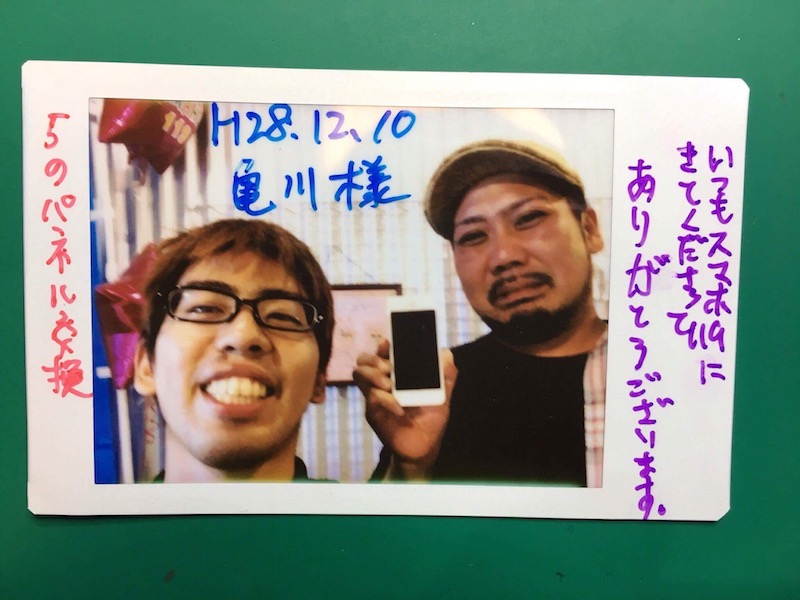 H28.12.10
亀川様
いつもスマホ119に
きてくださって
ありがとうございます。
5のパネル交換
119